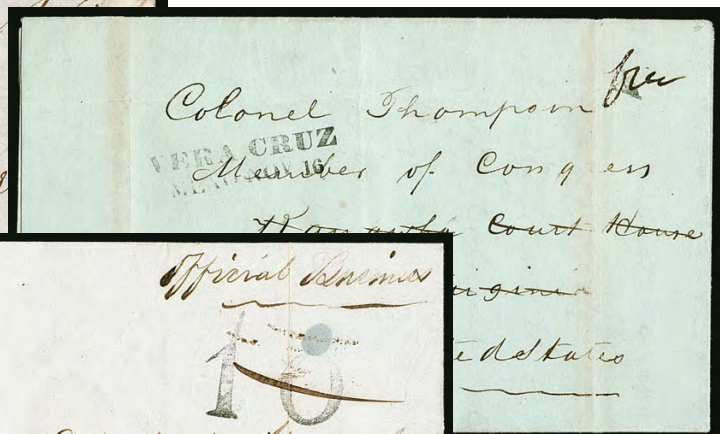 Colonel Thompson free
VERA CRUZ
MEX. NOV 16
Member of Congress
Kanawha Court House
Virginia
ted States
Official Business
10